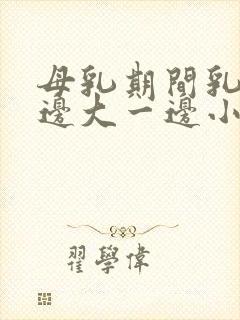 母乳期間乳
邊大一邊小
翟學偉